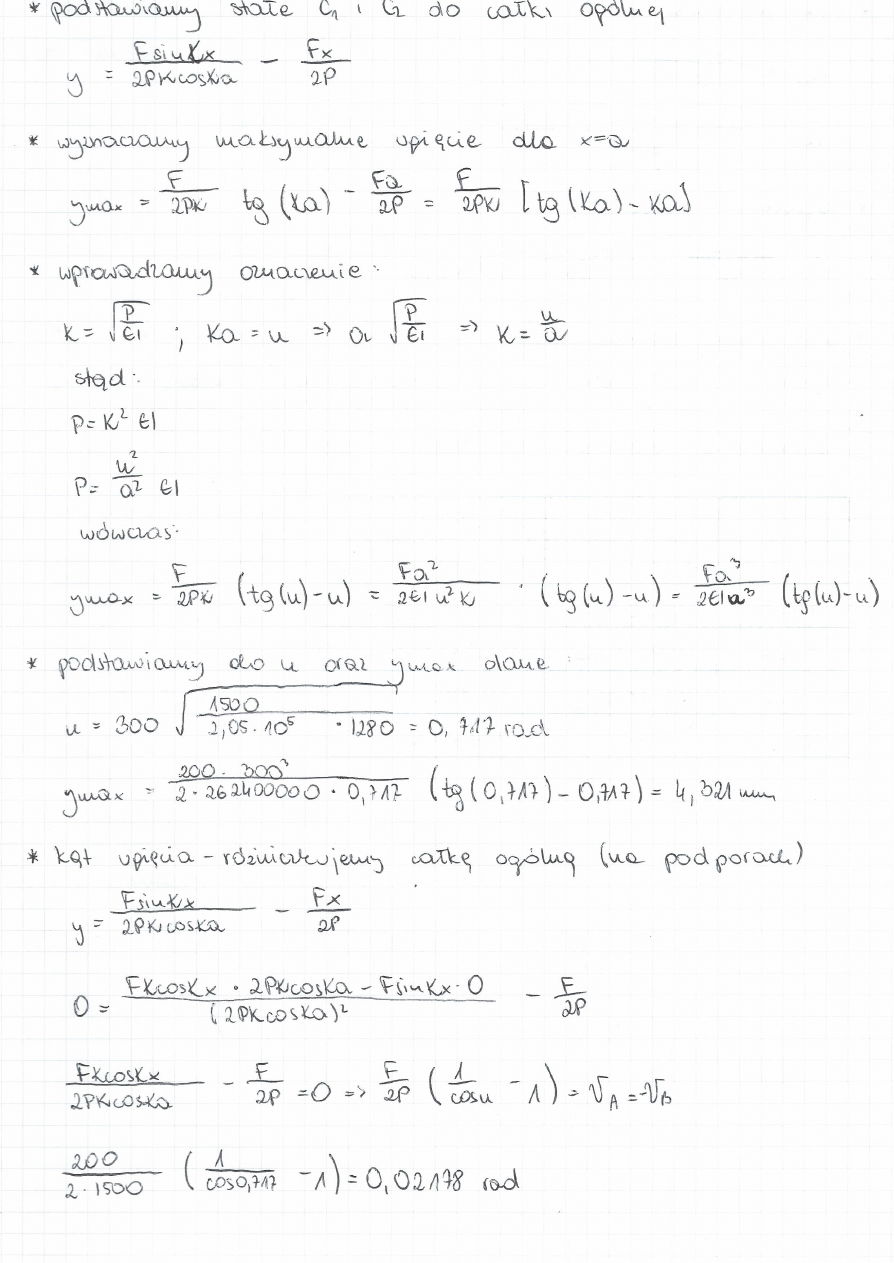 * podstawiamy stałe C₁ i C₂ do całki ogólnej
y = FsinKx / 2PKcosKa − Fx / 2P
* wyznaczamy maksymalne ugięcie dla x=a
ymax = F / 2PK tg (Ka) − Fa / 2P = F / 2PK [tg (Ka) − Ka]
* wprowadzamy oznaczenie:
K = √(P / EI) ; Ka = u => a √(P / EI) => K = u / a
stąd:
P = K² EI
P = u² / a² EI
wówczas:
ymax = F / 2PK (tg(u)−u) = Fa² / 2EI u² K · (tg(u)−u) = Fa³ / 2EI u³ (tg(u)−u)
* podstawiamy do u oraz ymax dane:
u = 300 √(1500 / 2,05·10⁵ · 1280) = 0,717 rad
ymax = 200 · 300³ / 2·262400000 · 0,717 (tg(0,717) − 0,717) = 4,321 mm
* kąt ugięcia − różniczkujemy całkę ogólną (na podporach)
y = FsinKx / 2PKcosKa − Fx / 2P
0 = FKcosKx · 2PKcosKa − FsinKx · 0 / (2PKcosKa)² − F / 2P
FKcosKx / 2PKcosKa − F / 2P = 0 => F / 2P (1 / cosu − 1) = √A = −√B
200 / 2·1500 (1 / cos0,717 − 1) = 0,02178 rad